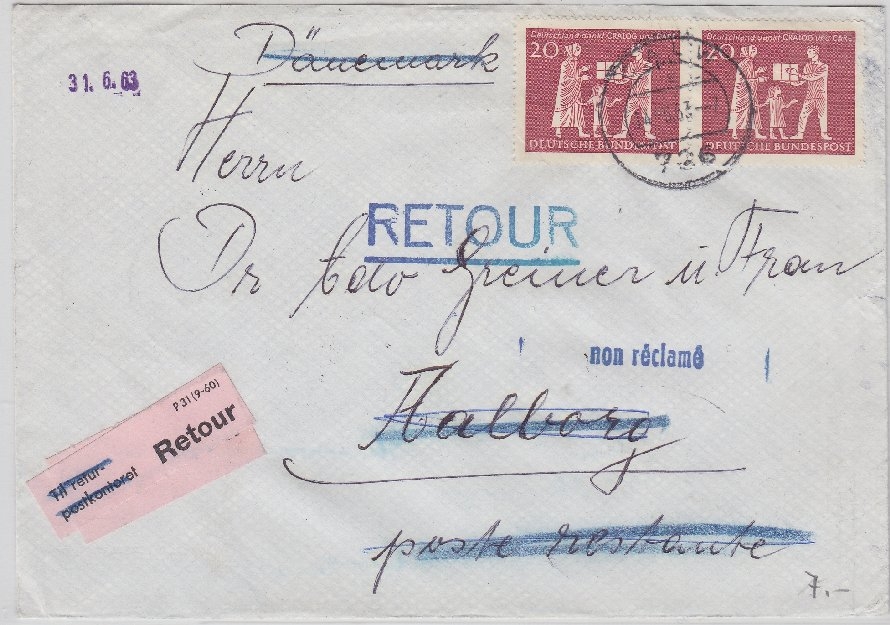 Dänemark
31. 6. 63
Deutschland dankt CRALOG und
20
DEUTSCHE BUNDESPOST
Deutschland dankt CRALOG und CARE
20
DEUTSCHE BUNDESPOST
726
Herrn
RETOUR
Dr Udo Greiner u Frau
non réclamé
Aalborg
P 31 (9-60)
Retour
Til retur-
postkontoret
poste restante
7.-